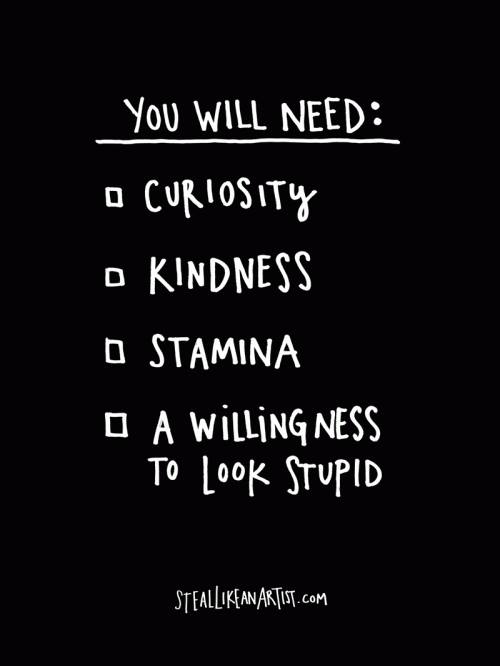 YOU WILL NEED:
CURIOSITY
KINDNESS
STAMINA
A WILLINGNESS
TO LOOK STUPID
STEALLIKEANARTIST.COM